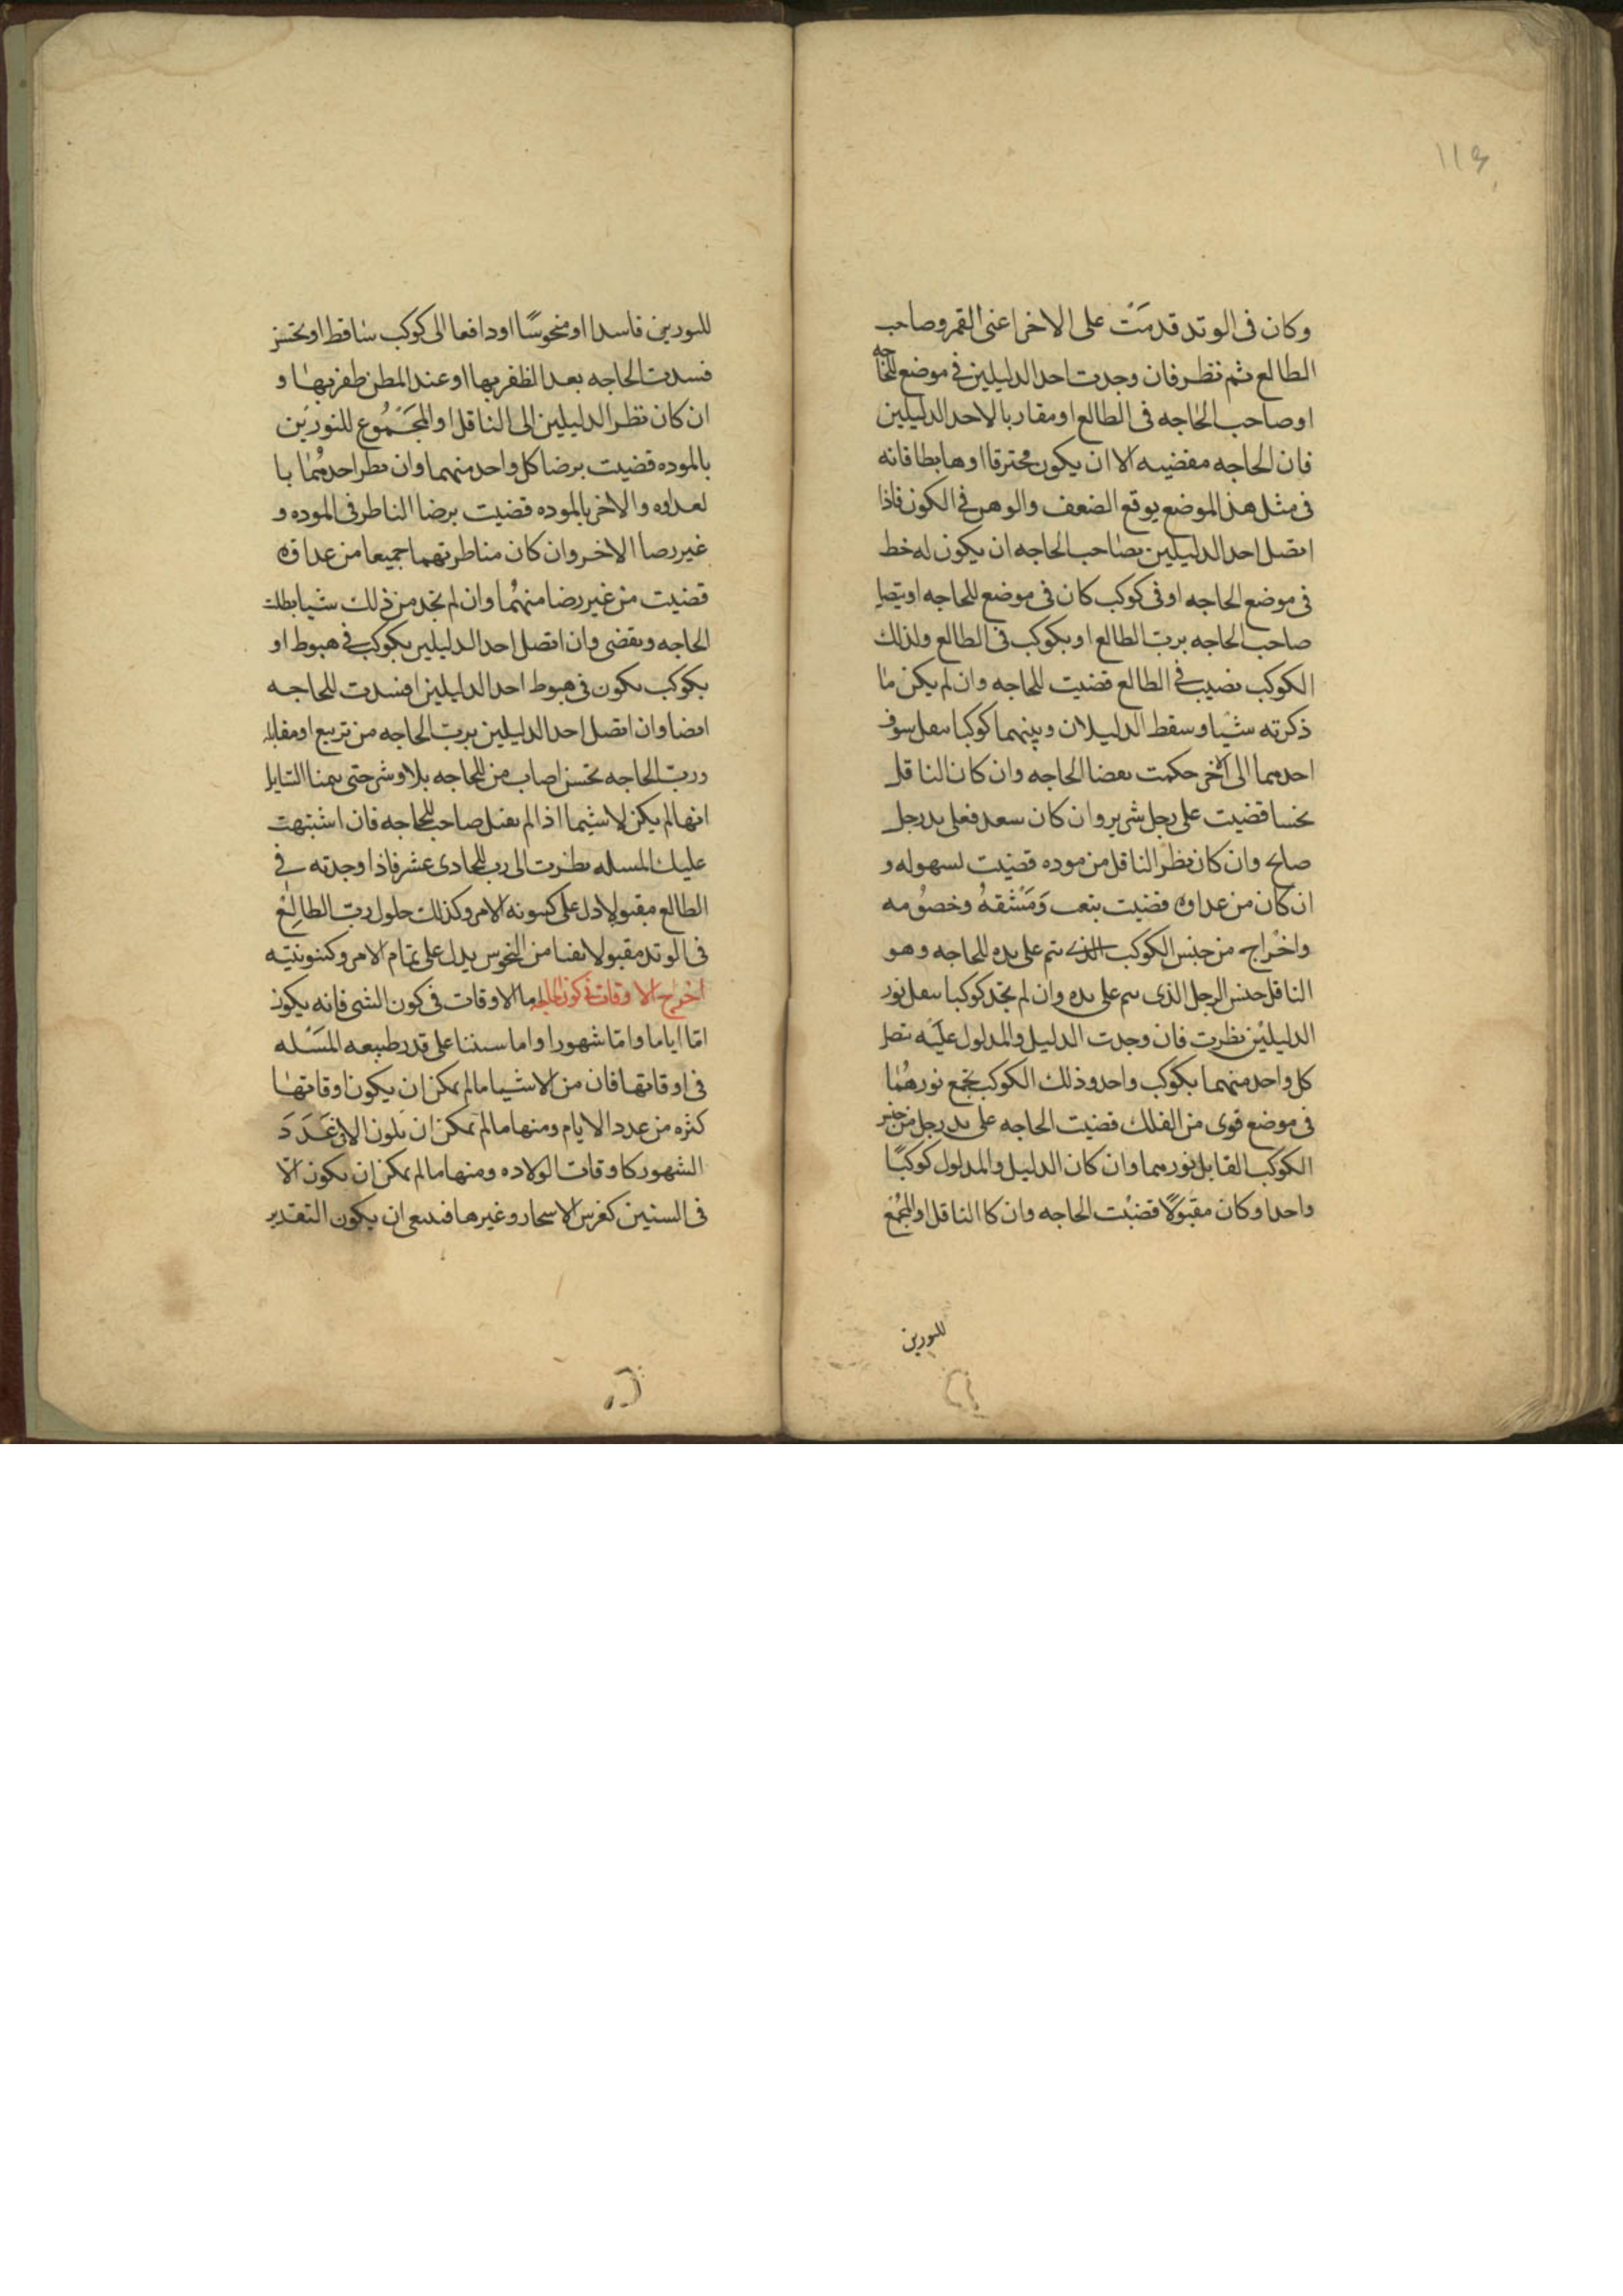 ١١٤
وكان فى الوتد قدمت على الاخر اعنى القمر وصاحب
الطالع ثم تنظر فان وجدت احد الدليلين فى موضع الحاجه
او صاحب الحاجه فى الطالع او مقاربا لاحد الدليلين
فان الحاجه مقضيه الا ان يكون محترقا او هابطا فانه
فى مثل هذ الموضع يوقع الضعف والوهن فى الكون فاذا
اتصل احد الدليلين بصاحب الحاجه ان يكون له خط
فى موضع الحاجه او فى كوكب كان فى موضع الحاجه او يتصل
صاحب الحاجه برب الطالع او بكوكب فى الطالع ولذلك
الكوكب نصيب فى الطالع قضيت الحاجه وان لم يكن ما
ذكرته شيا وسقط الدليلان وبينهما كوكبا ينقل سوف
احدهما الى الاخر حكمت بقضا الحاجه وان كان الناقل
نحسا قضيت على رجل شرير وان كان سعد فعلى يد رجل
صالح وان كان نظر الناقل من موده قضيت لسهوله و
ان كان من عداوه قضيت بتعب ومشقه وخصومه
واخراج من جنس الكوكب الذى يتم على يده الحاجه وهو
الناقل جنس الرجل الذى يتم على يده وان لم تجد كوكبا ينقل نور
الدليلين نظرت فان وجدت الدليل والمدلول عليه يتصل
كل واحد منهما بكوكب واحد وذلك الكوكب يجمع نورهما
فى موضع قوى من الفلك قضيت الحاجه على يد رجل من جنس
الكوكب القابل نورهما وان كان الدليل والمدلول كوكبا
واحدا وكان مقبولا قضيت الحاجه وان كا الناقل او المجمع
للنورين
للنورين فاسدا او منحوسا او دافعا الى كوكب ساقط او نحس
فسدت الحاجه بعد الظفر بها او عند المطن ظفر بها و
ان كان نظر الدليلين الى الناقل او المجموع للنورين
بالموده قضيت برضا كل واحد منهما وان نظر احدهما با
لعداوه والاخر بالموده قضيت برضا الناظر فى الموده و
غير رضا الاخر وان كان مناظرتهما جميعا من عداوه
قضيت من غير رضا منهما وان لم تجد من ذلك شيا بطلت
الحاجه وتقضى وان اتصل احد الدليلين بكوكب فى هبوط او
بكوكب يكون فى هبوط احد الدليلين افسدت الحاجه
ايضا وان اتصل احد الدليلين برب الحاجه من تربيع او مقابله
ورب الحاجه نحس اصاب من الحاجه بلا وشر حتى يتمنا السايل
انها لم يكن لا سيما اذا لم يقبل صاحب الحاجه فان اشتبهت
عليك المسله نظرت الى رب الحادى عشر فاذا وجدته فى
الطالع مقبولا دل على كينونه الامر وكذلك حلول رب الطالع
فى الوتد مقبولا نقيا من النحوس يدل على تمام الامر وكينونيته
اخراج الاوقات فى كون الحاجه اما الاوقات فى كون الشى فانه يكون
امّا اياما وامّا شهورا واما سنينا على قدر طبيعه المسله
فى اوقاتها فان من الاشيا ما لم يمكن ان يكون اوقاتها
كثره من عدد الايام ومنها ما لم يمكن ان يكون الا فى عدد
الشهور كاوقات الولاده ومنها ما لم يمكن ان يكون الّا
فى السنين كغرس الاسحار وغيرها فينبغى ان يكون التقدير